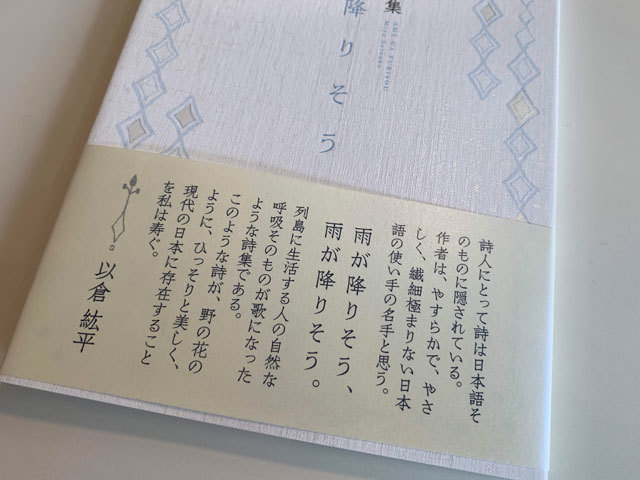 集
AME GA FURISOU
降りそう
詩人にとって詩は日本語そ
のものに隠されている。
作者は、やすらかで、やさ
しく、繊細極まりない日本
語の使い手の名手と思う。
雨が降りそう、
雨が降りそう。
列島に生活する人の自然な
呼吸そのものが歌になった
ような詩集である。
このような詩が、野の花の
ように、ひっそりと美しく、
現代の日本に存在すること
を私は寿ぐ。
以倉 紘平